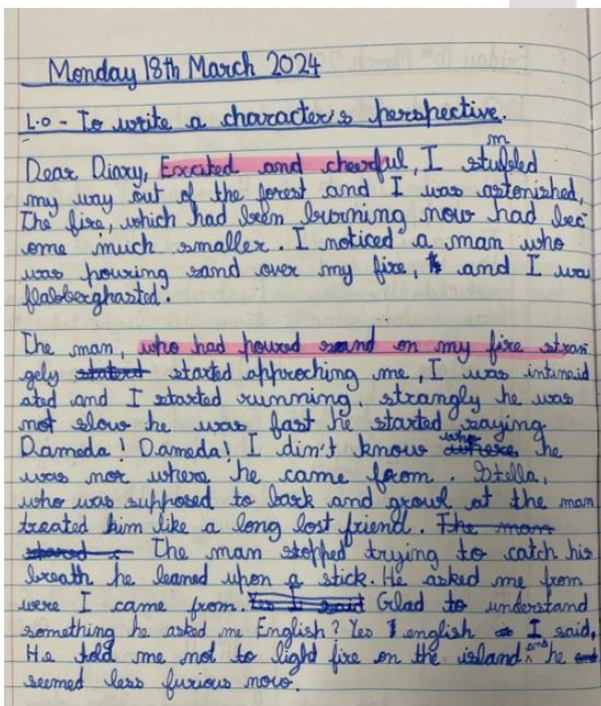 Monday 18th March 2024
L.O - To write a character's perspective.
Dear Diary, Excited and cheerful, I stumbled
my way out of the forest and I was astonished,
The fire, which had been burning now had bec
ome much smaller. I noticed a man who
was pouring sand over my fire, and I was
flabberghasted.
The man, who had poured sand on my fire stran
gely started approching me, I was intimid
ated and I started running, strangly he was
not slow he was fast he started saying
Dameda! Dameda! I din't know who he
was nor where he came from. Stella,
who was supposed to bark and growl at the man
treated him like a long lost friend. The man
The man stopped trying to catch his
breath he leaned upon a stick. He asked me from
were I came from. Yes I said Glad to understand
something he asked me English? Yes I english I said,
He told me not to light fire on the island and he
seemed less furious now.